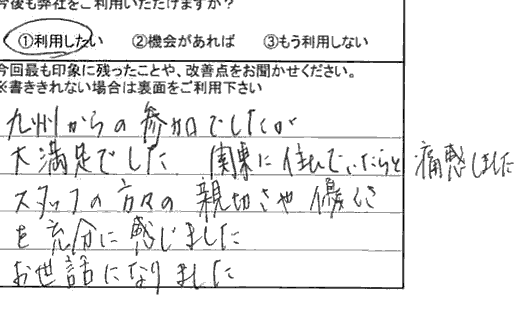 今後も弊社をご利用いただけますか？
①利用したい ②機会があれば ③もう利用しない
今回最も印象に残ったことや、改善点をお聞かせください。
※書ききれない場合は裏面をご利用下さい
九州からの参加でしたが
大満足でした 関東に住んでいたらと痛感しました
スタッフの方々の親切さや優しさ
を充分に感じました
お世話になりました